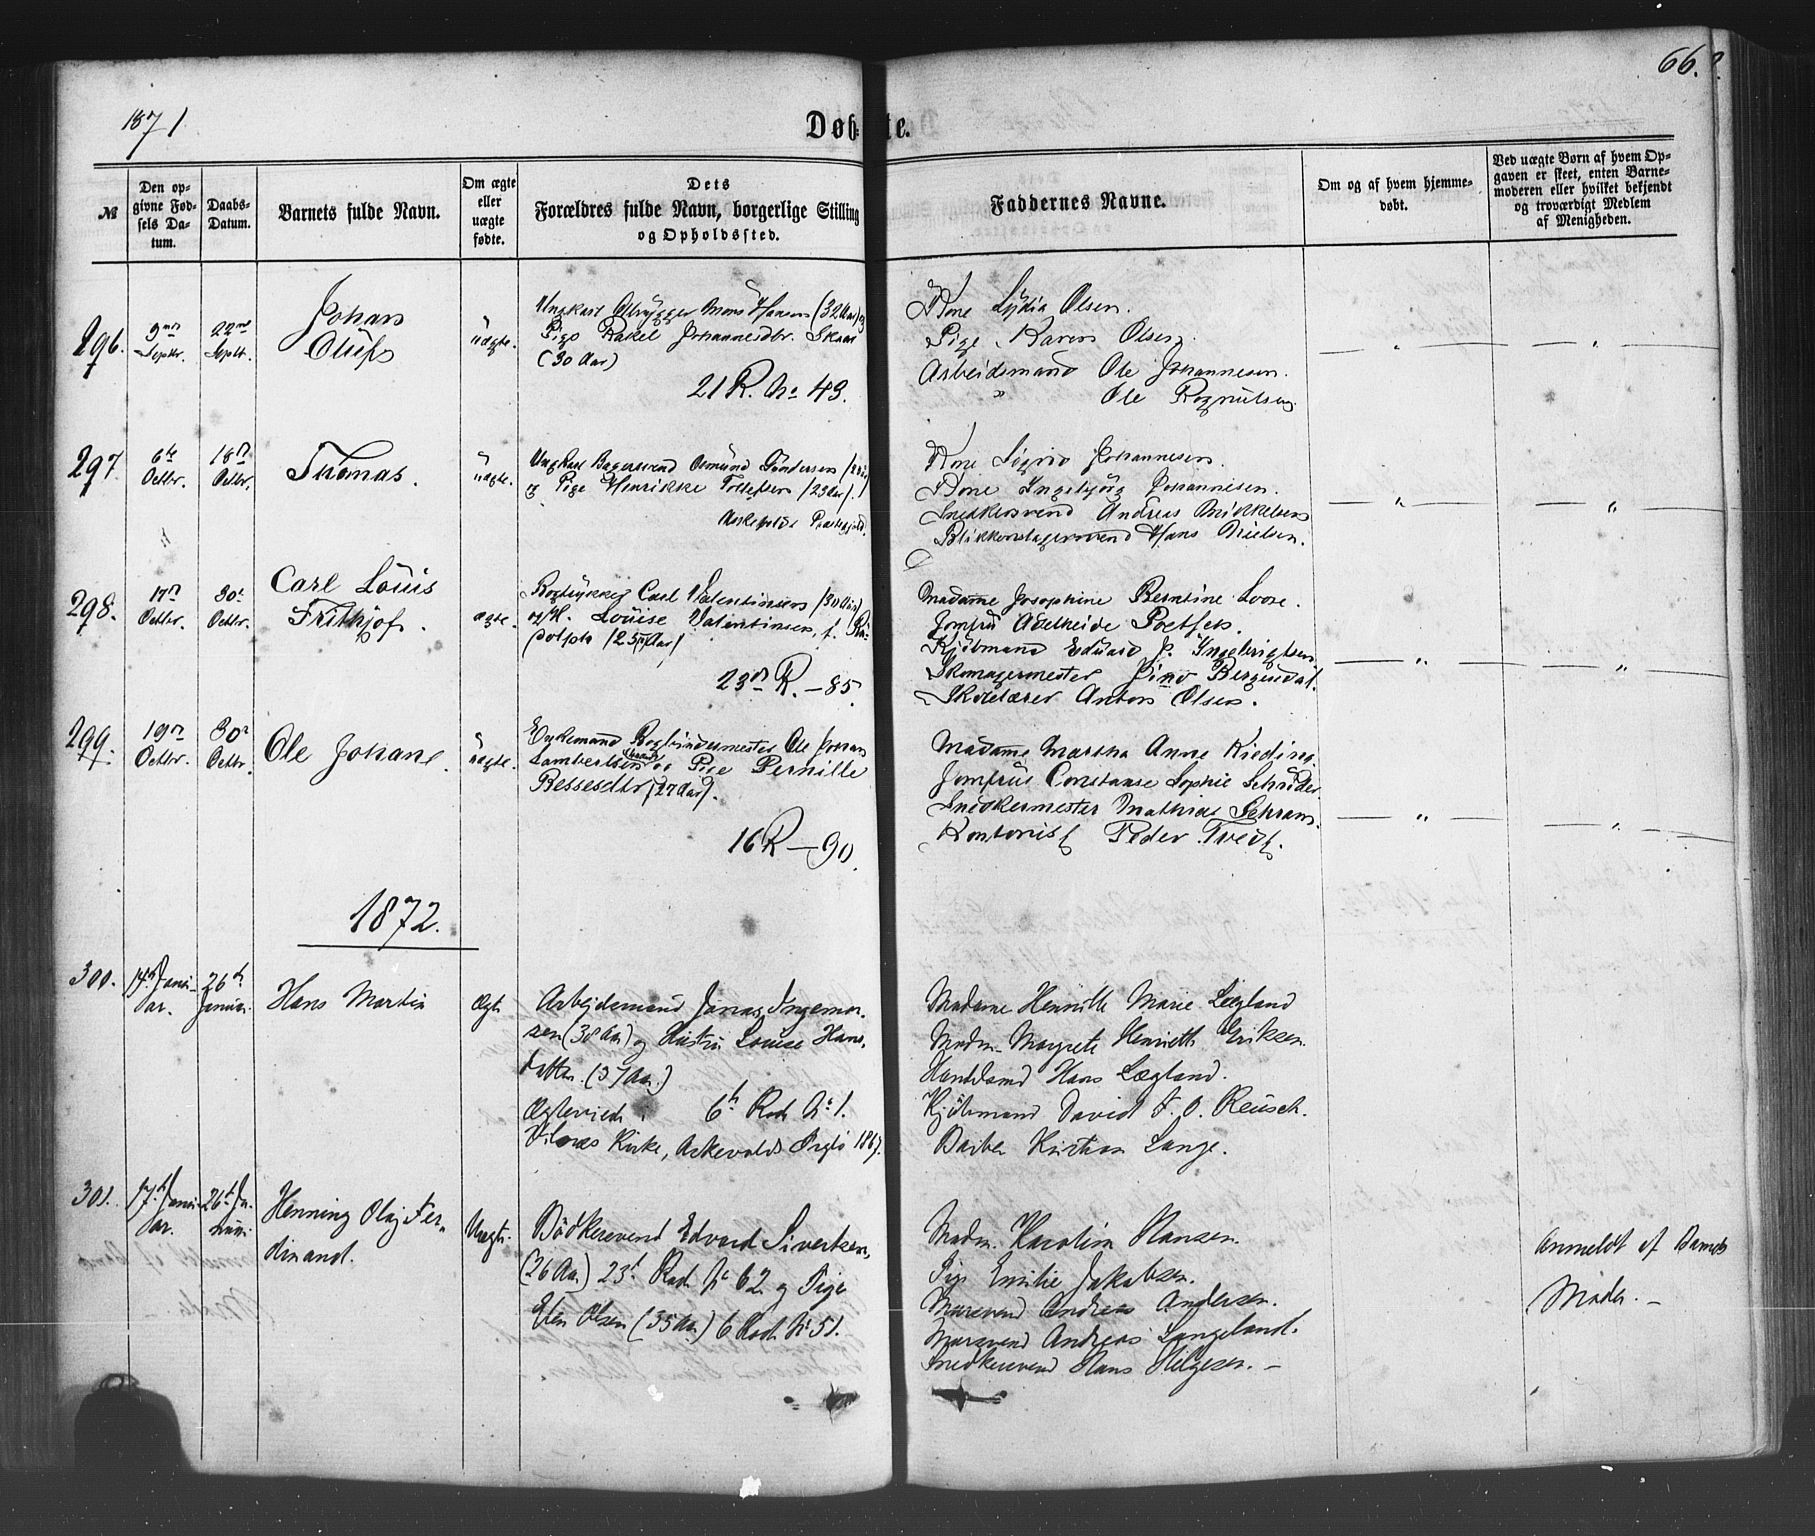 66.
1871
Døb- te.
№
Den op-
givne Fød-
sels Da-
tum.
Daabs-
Datum.
Barnets fulde Navn.
Om ægte
eller
uægte
fødte.
Dets
Forældres fulde Navn, borgerlige Stilling
og Opholdssted.
Faddernes Navne.
Om og af hvem hjemme-
døbt.
Ved uægte Børn af hvem Op-
gaven er skeet, enten Barne-
moderen eller hvilket bekjendt
og troværdigt Medlem
af Menigheden.
296.
9de
Septbr.
22de
Septbr.
Johan
Oluf
uægte.
Ungkarl Mons Hansen (32 Aar) og
Pige Rakel Johannesdtr. Skaar
(30 Aar)
21 R. No 43.
Kone Lydia Olsen.
Pige Karen Olsen.
Arbeidsmand Ole Johannesen.
" Ole Rognulsen
297.
6te
Octbr.
18de
Octbr.
Thomas.
uægte.
Ungkarl Bagersvend Osmund Tøndersen
og Pige Henrikke Tollefsen (23 Aar).
Askevolds Præstegjeld.
Kone Sigrid Johannesen.
Kone Ingebjørg Johannesen.
Snedkersvend Andreas Mikkelsen
Blikkenslagersvend Hans Nielsen.
298.
17de
Octbr.
30te
Octbr.
Carl Louis
Frithjof.
ægte.
Bogtrykker Carl Valentinsen (30 Aar)
og H. Louise Valentinsen, f. Ru-
dolph (25 Aar)
23de R. – 85.
Madame Josephine Berntine Loose.
Jomfru Adelheide Poetsch.
Kjøbmand Eduard J. Ingebrigtsen
Skomagermester Jind Bergendal.
Skolelærer Anton Olsen.
299.
19de
Octbr.
30te
Octbr.
Ole Johan.
uægte.
Enkemand Bogbindermester Ole Johan
Lambertsen og Pige Pernille
Bessesdtr (27 Aar).
16 R – 90.
Madame Martha Anne Kieding.
Jomfru Constanse Sophie Schrøder
Snedkermester Mathias Schram.
Kontorist Peder Tvedt.
1872.
300.
14de Janu-
ar.
26de
Januar
Hans Martin
Ægte
Arbeidsmand Jonas Ingemor-
sen (38 Aar) og Hustru Louise Hans-
datter (37 Aar.)
Ægteviede 6te Rode No 1.
Vilnæs Kirke, Askevolds Prgjld 1867.
Madame Henriette Marie Lægland
Madm. Margrete Henriette Eriksen
Hans Lægland.
Kjøbmand David F. O. Reusch.
Barber Kristian Lange.
301.
17de Janu-
ar.
26de Ja-
nuar
Henning Olaf Fer-
dinand.
Uægte.
Bødkersvend Edvard Sivertsen,
(26 Aar) 23de Rode No 62 og Pige
Elen Olsen (35 Aar) 6 Rode No 51.
Madm. Karoline Hansen.
Pige Emilie Jakobsen.
Mursvend Andreas Andersen.
Mursvend Andreas Langeland.
Snedkersvend Hans Helgesen. –
Anmeldt af Barnets
Moder. –